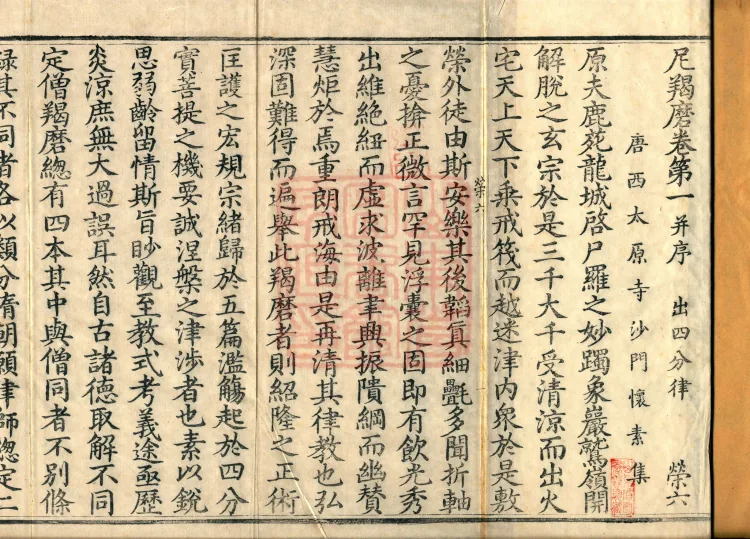 尼羯磨卷第一并序 出四分律 榮六
唐西太原寺沙門懷素集
原夫鹿苑龍城啓尸羅之妙躅象巖鷲嶺開
解脫之玄宗於是三千大千受清涼而出火
宅天上天下乘戒筏而越迷津內衆於是敷
榮外徒由斯安樂其後韜真細㲲多聞折軸
榮六
之憂揜正微言罕見浮囊之固即有飲光秀
出維絕紐而虛求波離聿興振隤綱而幽賛
慧炬於焉重朗戒海由是再清其律教也弘
深固難得而遍舉此羯磨者則紹隆之正術
匡護之宏規宗緒歸於五篇濫觴起於四分
寶菩提之機要誠涅槃之津涉者也素以銳
思弱齡留情斯旨眇觀至教式考義途亟歷
炎涼庶無大過誤耳然自古諸德取解不同
定僧羯磨總有四本其中與僧同者不別條
録其不同者各以類分隋朝願律師總定二